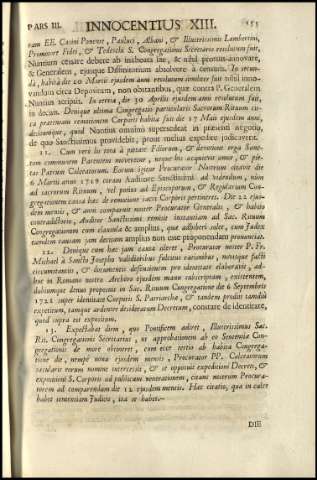 PARS III. INNOCENTIUS XIII. 155
tam EE. Casini Ponens, Paulucii, Albani, & Illustrissimis Lambertini,
Promotore Fidei, & Tedeschi S. Congregationis Secretario resolutum fuit,
Nuntium cessare debere ab inchoata lite, & nihil prorsus innovare,
& Generalem, ejusque Diffinitorium absolvere à censuris. In secun-
da, habita die 20 Martii ejusdem anni resolutum similiter fuit nihil inno-
vandum circa Depositum, non obstantibus, quæ contra P. Generalem
Nuntius scripsit. In tertia, die 30 Aprilis ejusdem anni resolutum fuit,
in decem. Denique ultima Congregatio particularis Sacrorum Rituum cir-
ca præsentem venerationem Corporis habita fuit die 17 Maii ejusdem anni,
decisumque, quod Nuntius omnino supersedeat in præsenti negotio,
de quo Sanctissimus providebit, prout melius expedire judicaverit.
11. Cum vero lis tota à pietate Filiorum, & devotione erga Sanc-
tum communem Parentem moveretur, neque his acquievit amor, & pie-
tas Patrum Calceatorum. Eorum igitur Procurator Nuntium citavit die
6 Martii anni 1721 coram Auditore Sanctissimi ad videndum, num
ad sacrorum Rituum, vel potius ad Episcoporum, & Regularium Con-
gregationem causa hæc de remotione sacri Corporis pertineret. Die 22 ejus-
dem mensis, & anni comparuit noster Procurator Generalis, & habito
contradictorio, Auditor Sanctissimi remisit instantiam ad Sac. Rituum
Congregationem cum clausula & amplius, quæ adjuberi solet, cum Judex
eandem causam jam decisam amplius non esse præponendam pronuntiat.
12. Denique cum hæc jam causa sileret, Procurator noster P. Fr.
Michael à Sancto Josepho validioribus fulcitus rationibus, novisque facti
circumstantiis, & documentis desumptis pro identitate elaboratis, ad-
huc in Romano nostro Archivo ejusdem manu subscriptum, existentem,
dubiumque denuo proposuit in Sac. Rituum Congregatione die 6 Septembris
1721 super identitate Corporis S. Patriarchæ, & tandem prodiit tamdiu
expetitum, tamque ardenter desideratum Decretum, constare de identitate,
quod supra est expositum.
13. Expectabat dein, quo Pontificem adiret, Illustrissimus Sac.
Rit. Congregationis Secretarius, ut approbationem ab eo Sententiæ Con-
gregationis de more obtineret, cum ecce tertio ab habita Congrega-
tione die, nempe nona ejusdem mensis, Procurator PP. Calceatorum
totularis eorum nomine intercessit, & se opposuit expeditioni Decreti, &
expositioni S. Corporis ad publicam venerationem, citans nostrum Procura-
torem ad comparendum die 12 ejusdem mensis. Hæc citatio, qua in calce
habet sententiam Judicis, ita se habet.-
DIE